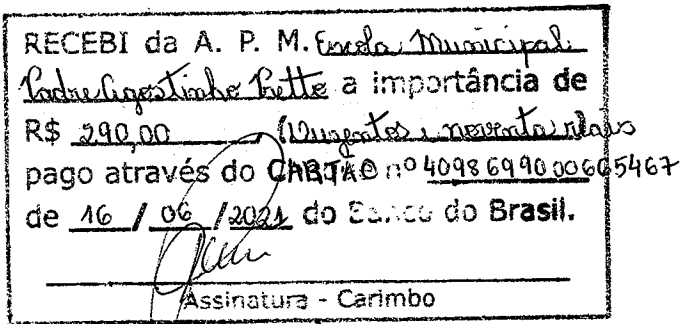 RECEBI da A. P. M. Escola Municipal
Padre Agostinho Prette a importância de
R$ 290,00 (Duzentos e noventa reais
pago através do CARTÃO nº 4098699000665467
de 16 / 06 / 2021 do Banco do Brasil.
Assinatura - Carimbo